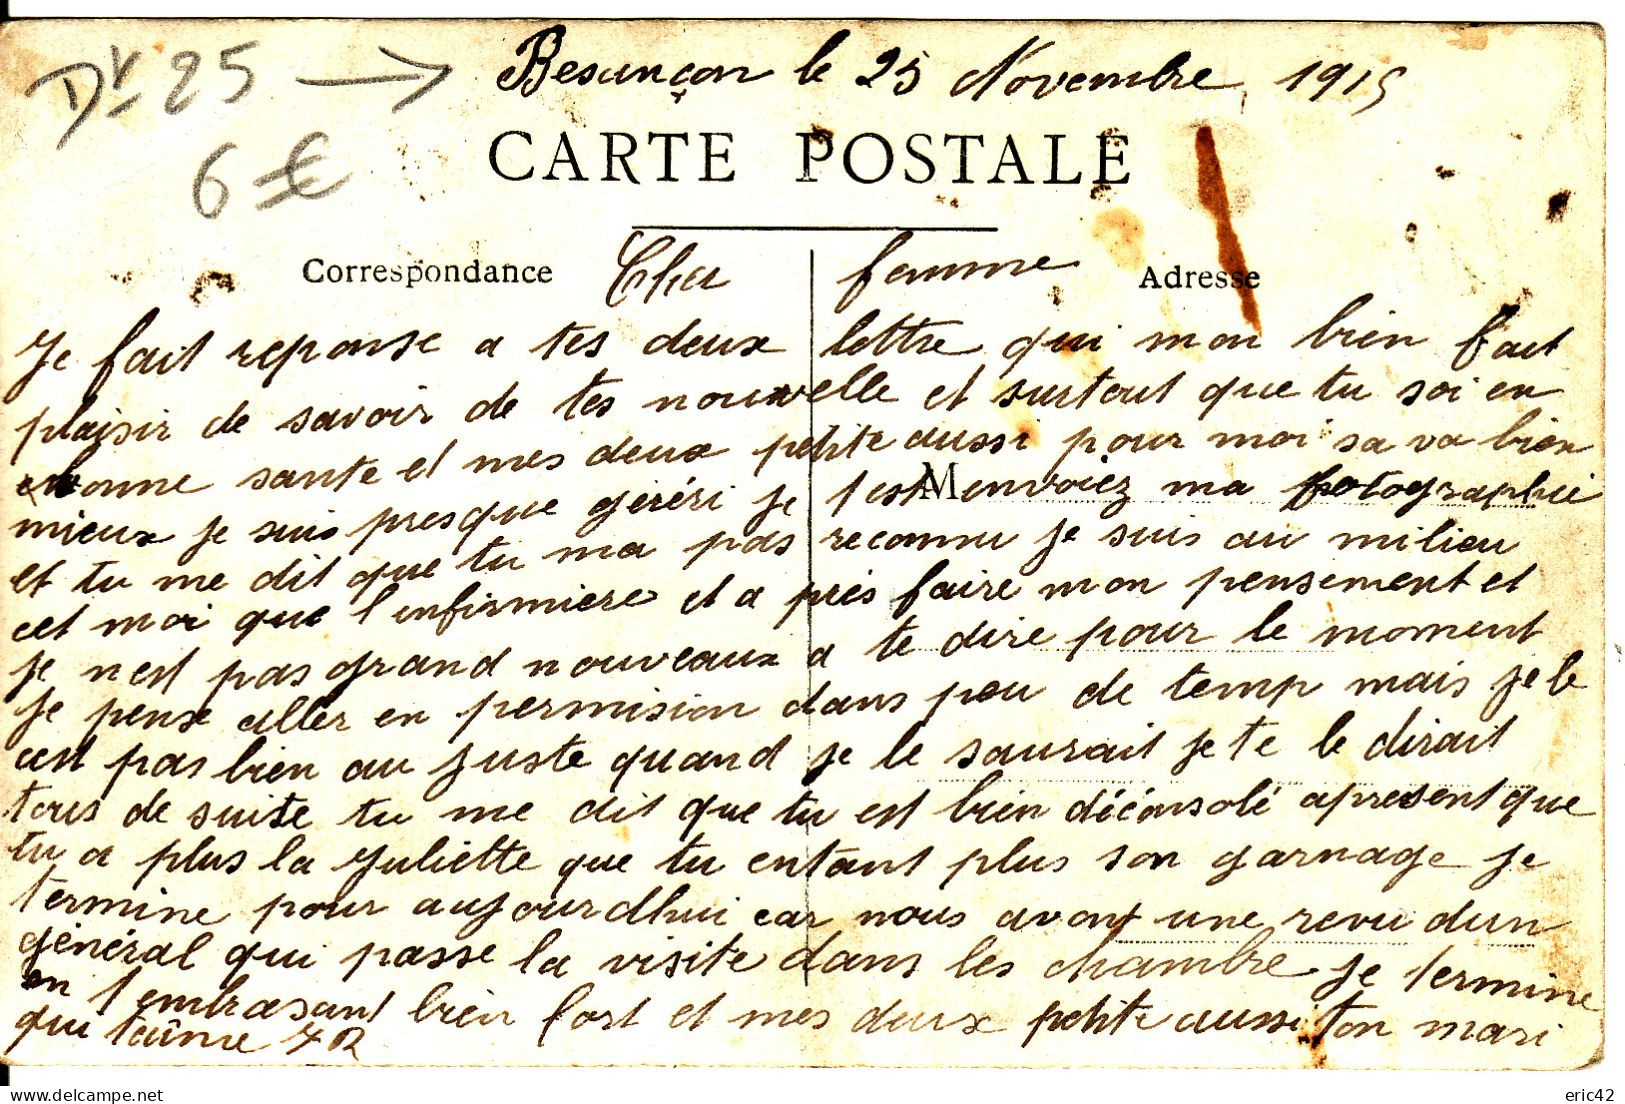 Dr 25 → Besançon le 25 Novembre 1915
6 €
CARTE POSTALE
Correspondance
Adresse
M
Cher femme
Je fait reponse a tes deux lettre qui mon bien fait
plaisir de savoir de tes nouvelle et surtout que tu soi en
bonne sante et mes deux petite aussi pour moi sa va bien
mieux je suis presque geréri je test envoiez ma fotographie
et tu me dit que tu ma pas reconnu je suis au milieu
cet moi que l'enfirmiere et a près faire mon pensement et
je nest pas grand nouveaux a te dire pour le moment
je pense aller en permision dans peu de temp mais je le
cest pas bien au juste quand je le saurait je te le dirait
tous de suite tu me dit que tu est bien déconsolé apresent que
tu a plus la Juliette que tu entant plus son garnage je
termine pour aujourdhui car nous avont une revu dun
général qui passe la visite dans les chambre je termine
en tembrasant bien fort et mes deux petite aussi ton mari
qui taîme
eric42